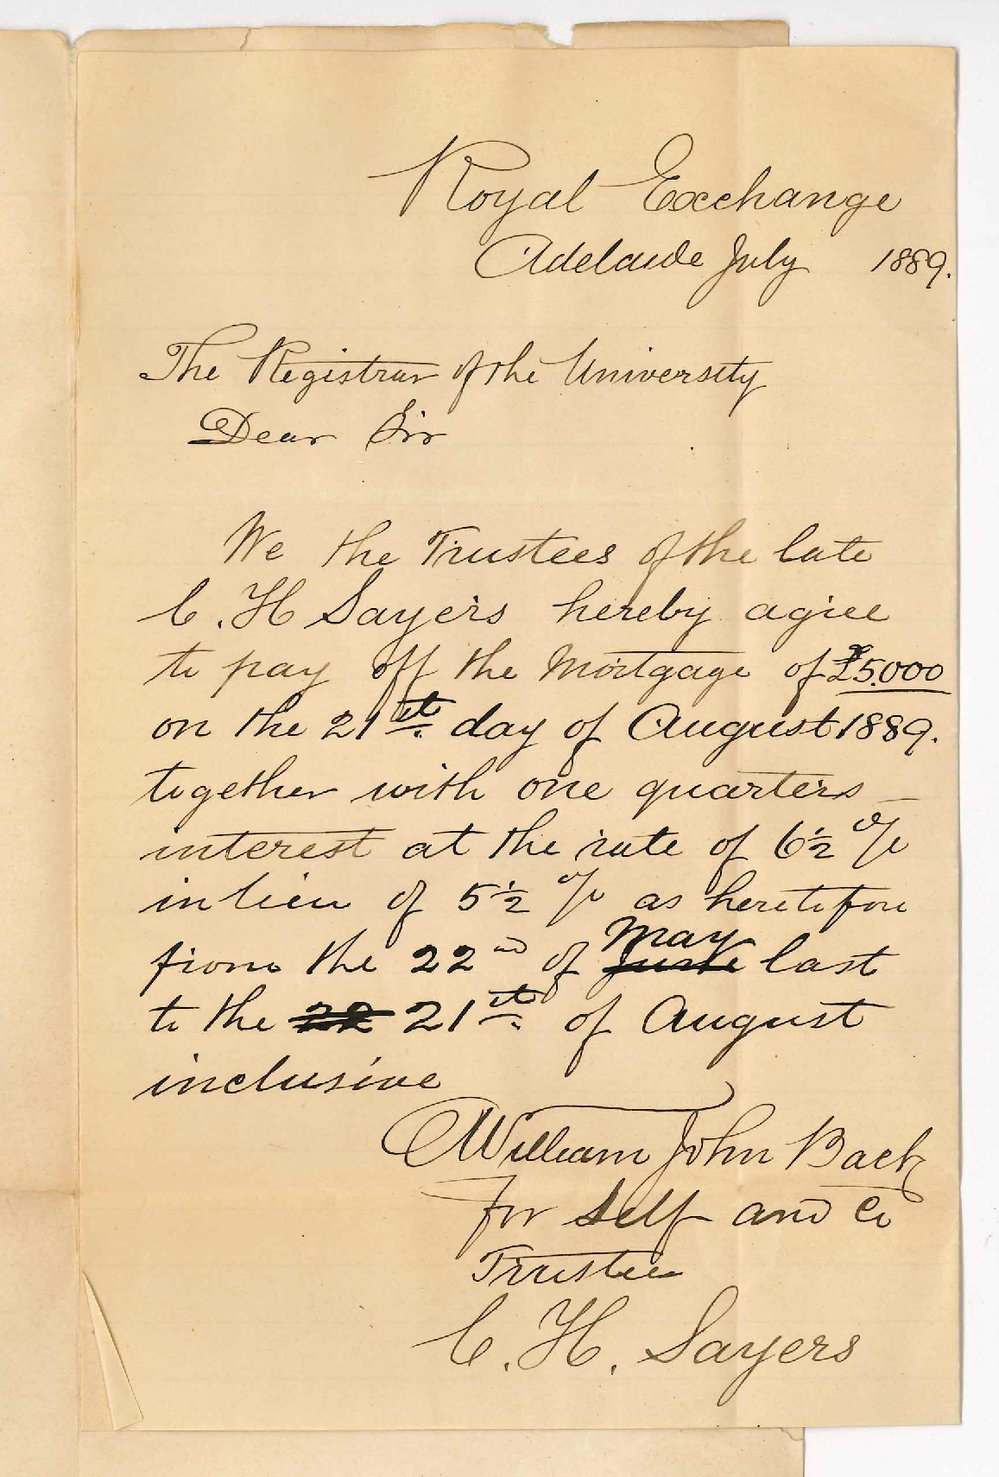 Royal Exchange
Adelaide July 1889.
The Registrar of the University
Dear Sir
We the Trustees of the late
C. H Sayers hereby agree
to pay off the Mortgage of £5.000
on the 21st day of August 1889.
together with one quarters
interest at the rate of 6½ %
in lieu of 5½ % as heretofore
May
from the 22nd of June last
to the 22 21st of August
inclusive
William John Back
For Self and Co
Trustee
C. H. Sayers